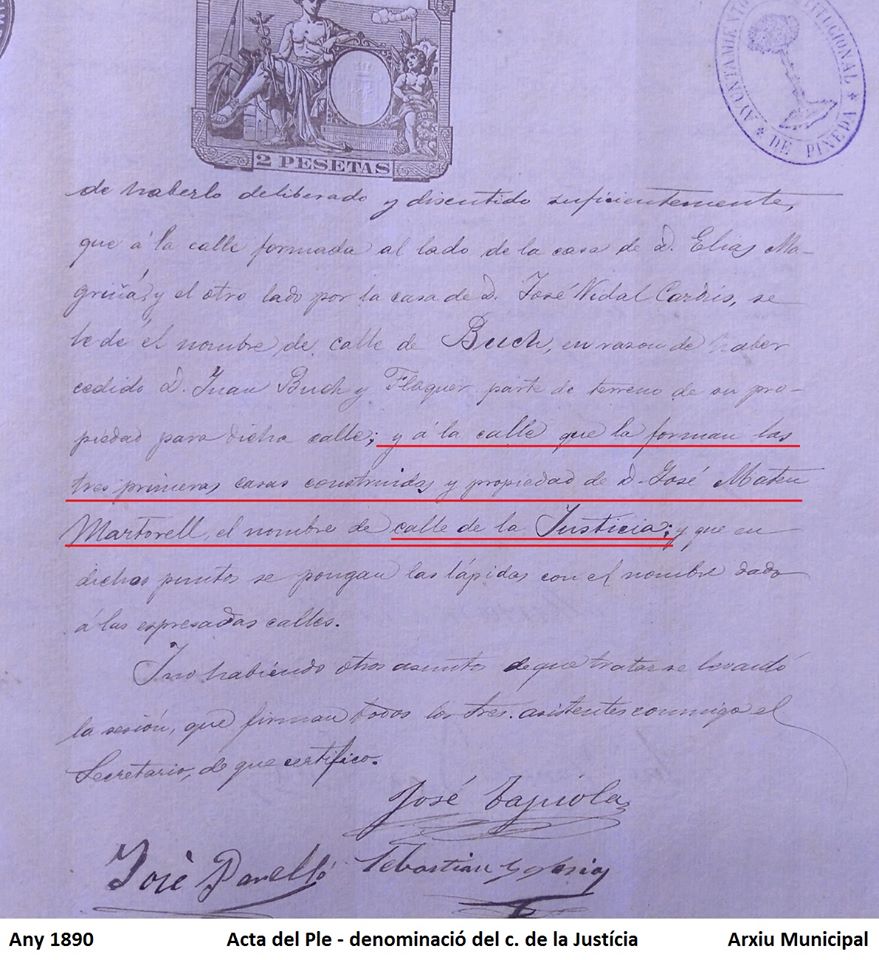 2 PESETAS
AYUNTAMIENTO CONSTITUCIONAL
* DE PINEDA *
de haberlo deliberado y discutido suficientemente,
que á la calle formada al lado de la casa de D. Elias Ma-
griñá; y el otro lado por la casa de D. José Vidal, se
le dé el nombre de calle de Buch, en razon de haber
cedido D. Juan Buch y Flaquer parte de terreno de su pro-
piedad para dicha calle; y á la calle que la forman las
tres primeras casas construidas y propiedad de D. José Mateu
Martorell, el nombre de calle de la Justicia; y que en
dichos puntos se pongan las lápidas con el nombre dado
á las espresadas calles.
Y no habiendo otros asuntos de que tratar se levantó
la sesión, que firman todos los tres asistentes conmigo el
Secretario, de que certifico.
José Tapiola
José Parelló Sebastian
Any 1890 Acta del Ple - denominació del c. de la Justícia Arxiu Municipal